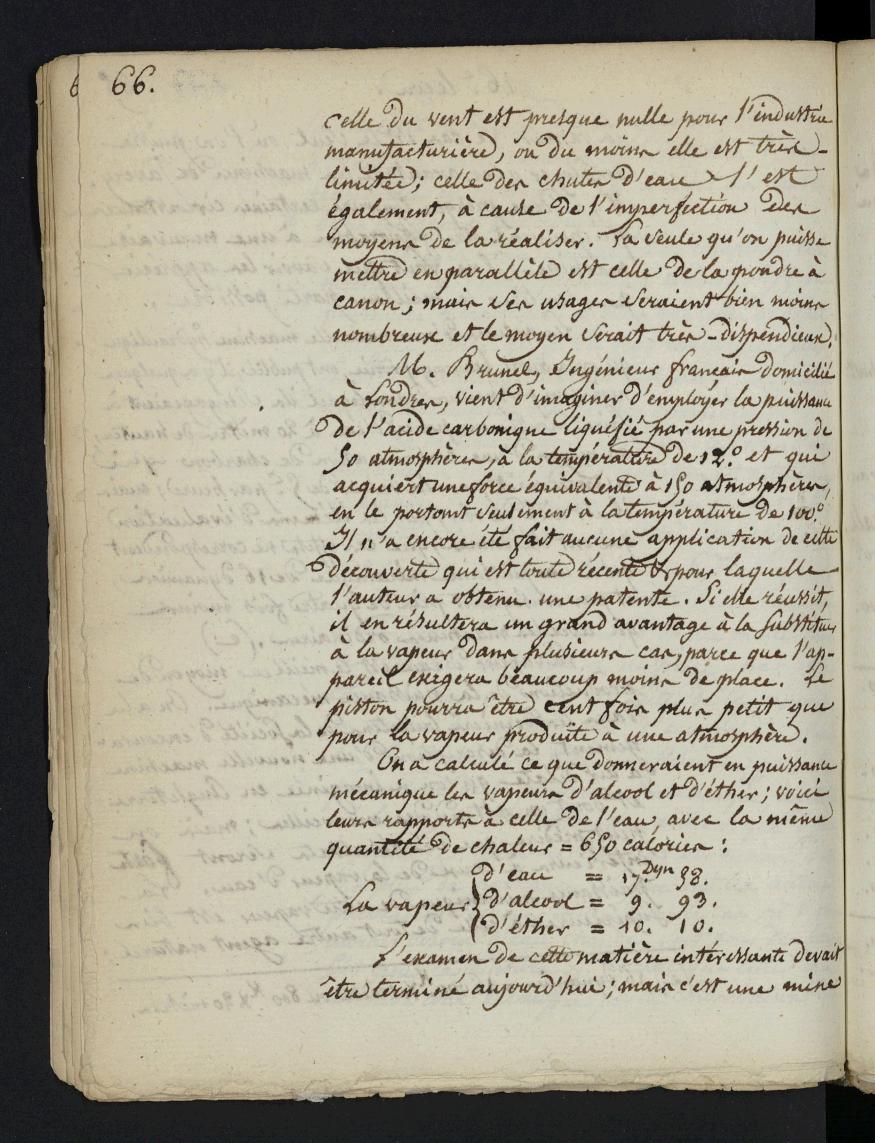 66.
celle du vent est presque nulle pour l'industrie
manufacturière, ou du moins elle est très-
limitée; celle des chutes d'eau l'est
également, à cause de l'imperfection des
moyens de la réaliser. La seule qu'on puisse
mettre en parallèle est celle de la poudre à
canon; mais ses usages seraient bien moins
nombreux et le moyen serait très-dispendieux.
M. Brunel, Ingénieur français domicilié
à Londres, vient d'imaginer d'employer la puissance
de l'acide carbonique liquéfié par une pression de
50 atmosphères, à la température de 12.° et qui
acquiert une force équivalente à 150 atmosphères,
en le portant seulement à la température de 100.°
Il n'a encore été fait aucune application de cette
découverte qui est toute récente & pour laquelle
l'auteur a obtenu une patente. Si elle réussit,
il en résultera un grand avantage à la substituer
à la vapeur dans plusieurs cas, parce que l'ap-
pareil exigera beaucoup moins de place. Le
piston pourra être cent fois plus petit que
pour la vapeur produite à une atmosphère.
On a calculé ce que donneraient en puissance
mécanique les vapeurs d'alcool et d'éther; voici
leurs rapports à celle de l'eau, avec la même
quantité de chaleur = 650 calories:
La vapeur { d'eau = 17.Dyn 58.
d'alcool = 9. 93.
d'éther = 10. 10.
L'examen de cette matière intéressante devait
être terminé aujourd'hui; mais c'est une mine